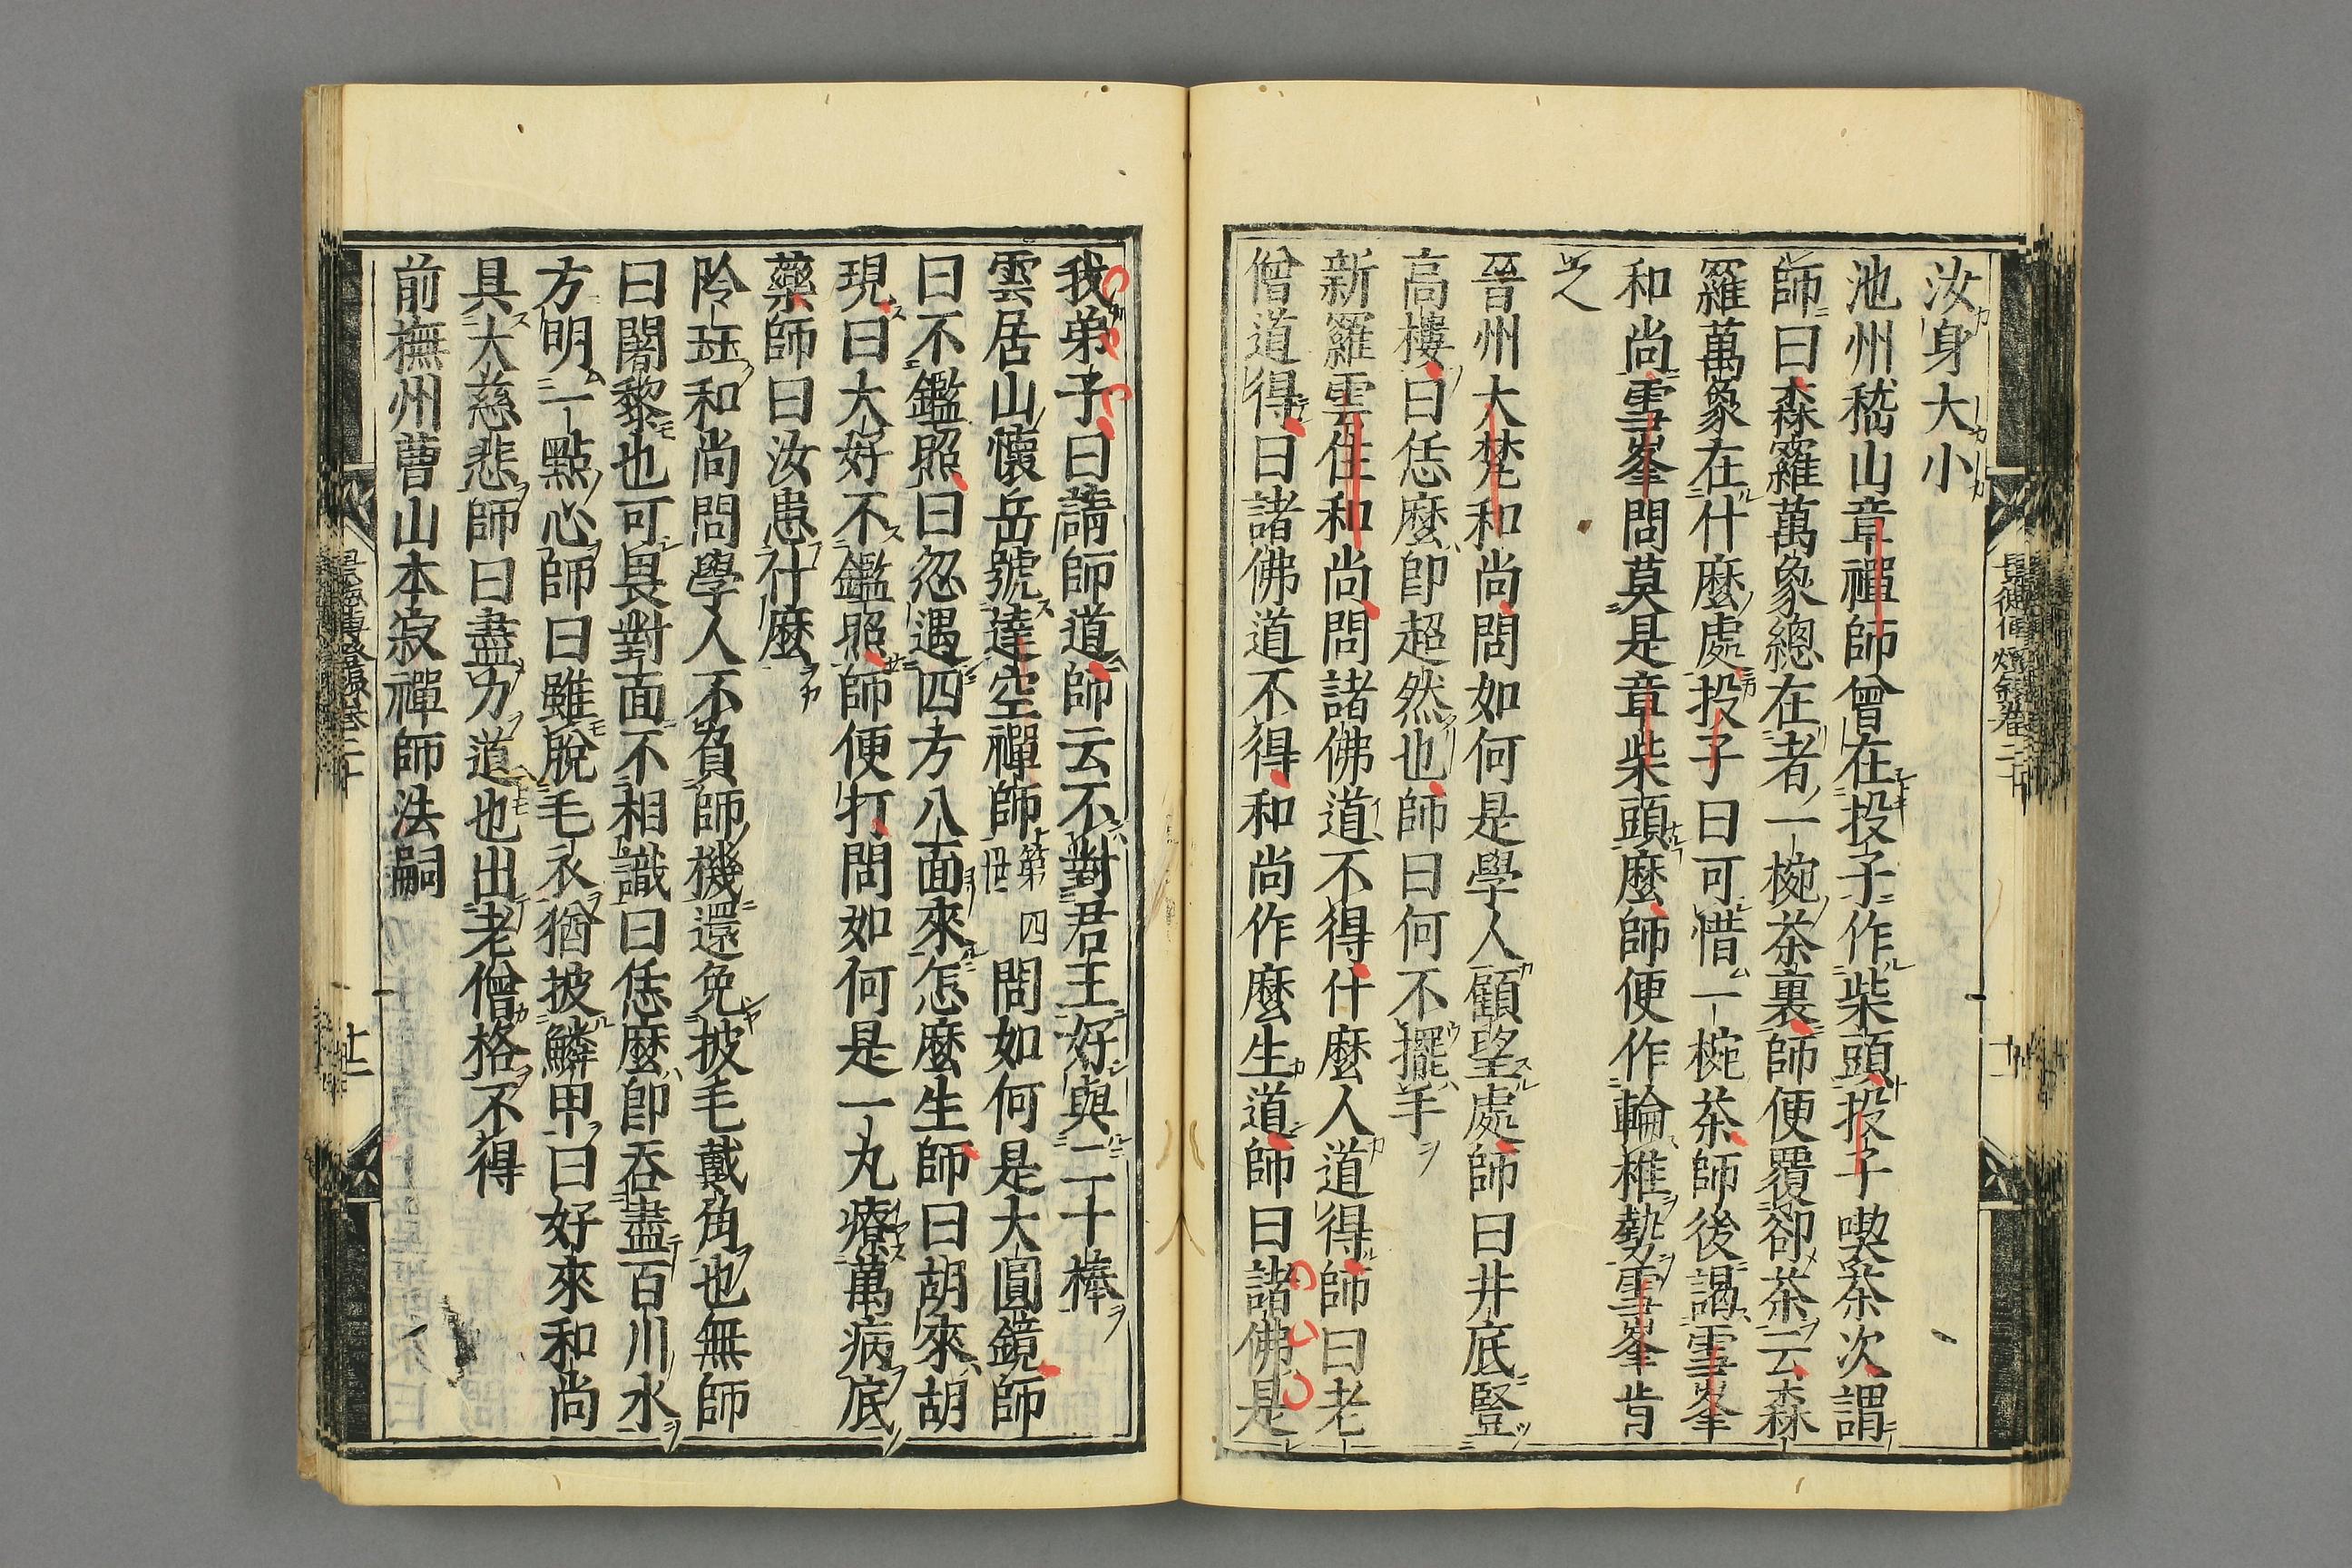 汝身大小
池州嵇山章禪師曾在投子作柴頭投子喫茶次謂
師曰森羅萬象總在者一椀茶裏師便覆卻茶云森
羅萬象在什麼處投子曰可惜一椀茶師後謁雪峯
和尚雪峯問莫是章柴頭麼師便作輪椎勢雪峯肯
之
晉州大梵和尚問如何是學人顧望處師曰井底豎
高樓曰恁麼即超然也師曰何不擺手
新羅雲住和尚問諸佛道不得什麼人道得師曰老
僧道得曰諸佛道不得和尚作麼生道師曰諸佛是
我弟子曰請師道師云不對君王好與二十棒
雲居山懷岳號達空禪師第四世問如何是大圓鏡師
曰不鑑照曰忽遇四方八面來怎麼生師曰胡來胡
現曰大好不鑑照師便打問如何是一丸療萬病底
藥師曰汝患什麼
阾珏和尚問學人不負師機還免披毛戴角也無師
曰闍黎也可畏對面不相識曰恁麼即吞盡百川水
方明一點心師曰雖脫毛衣猶披鱗甲曰好來和尚
具大慈悲師曰盡力道也出老僧格不得
前撫州曹山本寂禪師法嗣